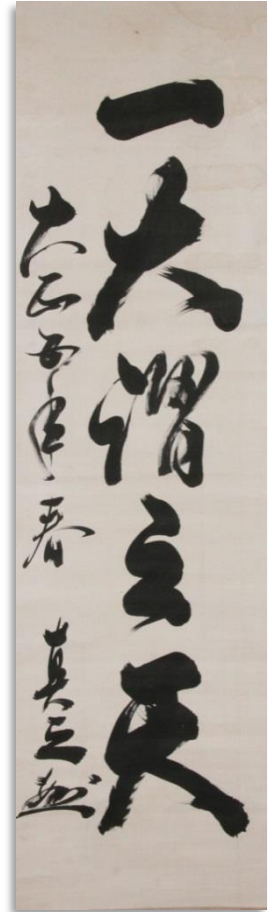 一大謂之天
大正五年春 真之題